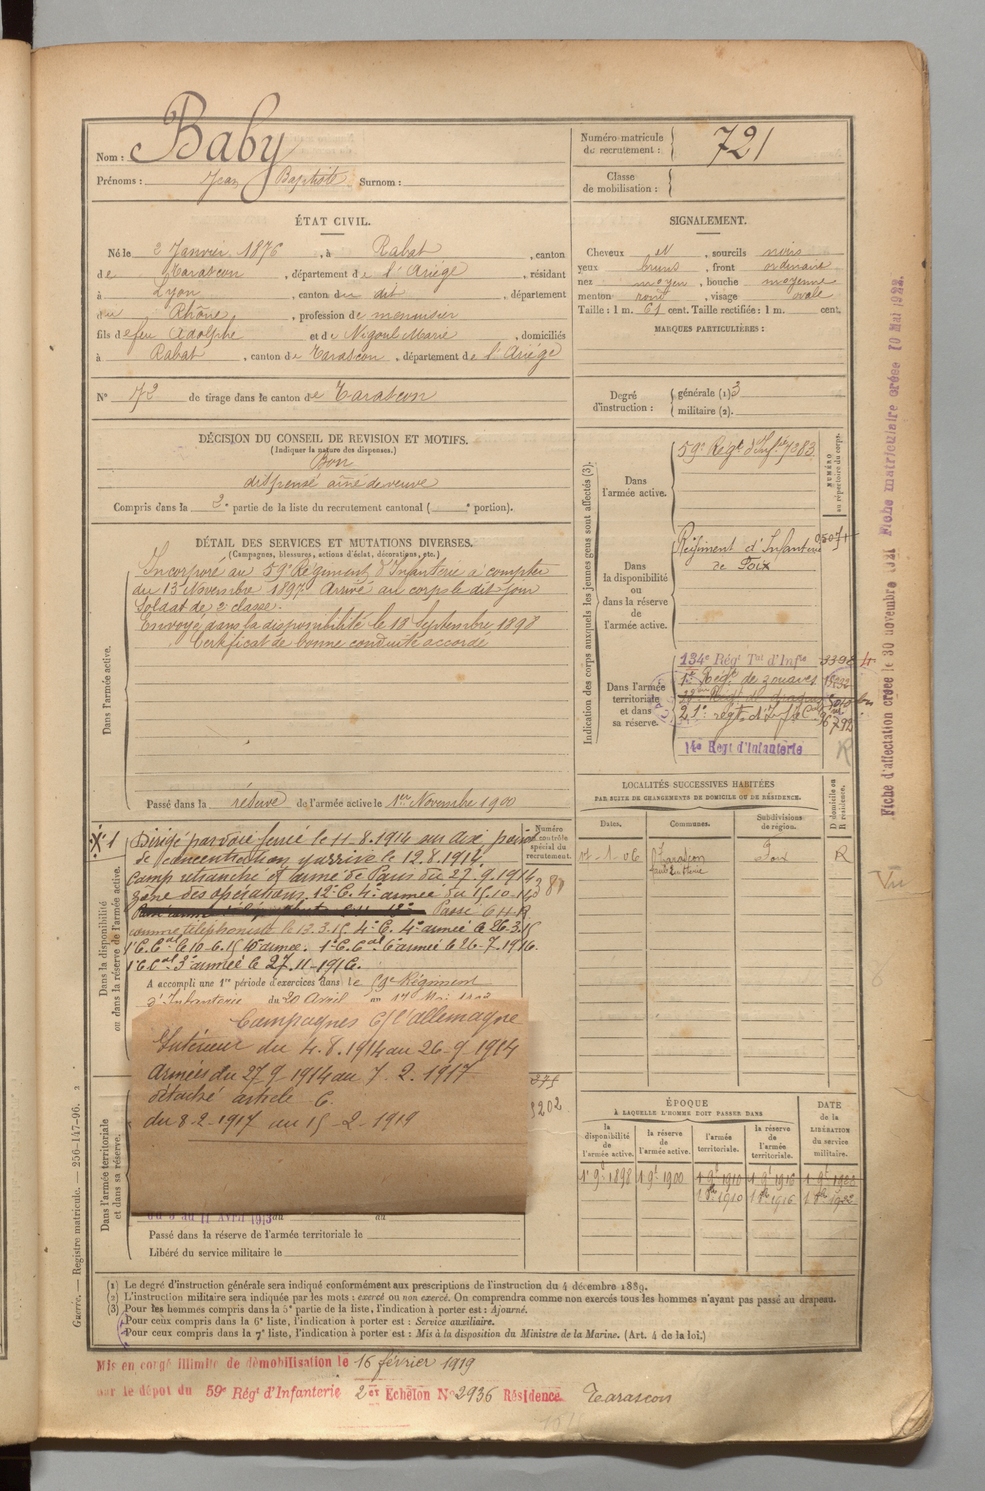 Nom : Baby
Prénoms : Jean Baptiste Surnom :
Numéro matricule
du recrutement : 721
Classe
de mobilisation :
ÉTAT CIVIL.
Né le 2 Janvier 1876, à Rabat, canton
de Tarascon, département de l'Ariège, résidant
à Lyon, canton du dit, département
du Rhône, profession de menuisier
fils de feu Adolphe et de Négoul Marie, domiciliés
à Rabat, canton de Tarascon, département de l'Ariège
N° 72 de tirage dans le canton de Tarascon
SIGNALEMENT.
Cheveux et, sourcils noirs
yeux bruns, front ordinaire
nez moyen, bouche moyenne
menton rond, visage ovale
Taille : 1 m. 61 cent. Taille rectifiée : 1 m. cent.
MARQUES PARTICULIÈRES :
Degré
d'instruction :
générale (1) 3
militaire (2).
DÉCISION DU CONSEIL DE REVISION ET MOTIFS.
(Indiquer la nature des dispenses.)
Bon
dispensé aîné de veuve
Compris dans la 2e partie de la liste du recrutement cantonal ( e portion).
DÉTAIL DES SERVICES ET MUTATIONS DIVERSES.
(Campagnes, blessures, actions d'éclat, décorations, etc.)
Dans l'armée active.
Incorporé au 59e Régiment d'Infanterie à compter
du 13 Novembre 1897. Arrivé au corps le dit jour
Soldat de 2e classe.
Envoyé dans la disponibilité le 18 Septembre 1898
Certificat de bonne conduite accordé
Passé dans la réserve de l'armée active le 1er Novembre 1900
Indication des corps auxquels les jeunes gens sont affectés (3).
NUMÉRO
au répertoire du corps.
Dans
l'armée active.
59e Régt d'Infie 7083
Dans
la disponibilité
ou
dans la réserve
de
l'armée active.
Régiment d'Infanterie
de Foix
Dans l'armée
territoriale
et dans
sa réserve.
134e Régt Tal d'Infie
1er Régt de zouaves
21e régt d'Infie Cale
14e Regt d'Infanterie
R
LOCALITÉS SUCCESSIVES HABITÉES
PAR SUITE DE CHANGEMENTS DE DOMICILE OU DE RÉSIDENCE.
Dates.
Communes.
Subdivisions
de région.
D domicile ou
R résidence.
Tarascon
Foix R
Numéro
de contrôle
spécial du
recrutement.
Dans la disponibilité
ou dans la réserve de l'armée active.
Dirigé par voie ferrée le 11.8.1914 sur
de concentration y arrive le 12.8.1914.
Camp retranché et armé de Paris du 27.9.1914
zône des opérations. 12e C. 4e armée du 15.10.14
Passé
comme téléphoniste le 13.3.15 4e C. 4e armée le 26.3.15
1e C. Cal le 10.6.15 armée. 1e C. Cal 6e armée le 26-7.1916.
1e C. Cal 3e armée le 27.11-1916.
A accompli une 1re période d'exercices dans le 59e Régiment
d'Infanterie du 20 Avril au 17 Mai
Campagnes C/ l'allemagne
Intérieur du 4.8.1914 au 26-9-1914
Armées du 27 9 1914 au 7.2.1917
détaché article 6.
du 8-2-1917 au 15-2-1919
3202
Dans l'armée territoriale
et dans sa réserve.
du 3 au 11 Avril 1913 au du
Passé dans la réserve de l'armée territoriale le
Libéré du service militaire le
ÉPOQUE
À LAQUELLE L'HOMME DOIT PASSER DANS
la
disponibilité
de
l'armée active.
la réserve
de
l'armée active.
l'armée
territoriale.
la
réserve
de
l'armée
territoriale.
DATE
de la
LIBÉRATION
du service
militaire.
1er 9bre 1898 1er 9bre 1900 1er 9bre 1910 1er 9bre 1916 1er 9bre 1922
(1) Le degré d'instruction générale sera indiqué conformément aux prescriptions de l'instruction du 4 décembre 1889.
(2) L'instruction militaire sera indiquée par les mots : exercé ou non exercé. On comprendra comme non exercés tous les hommes n'ayant pas passé au drapeau.
(3) Pour les hommes compris dans la 5e partie de la liste, l'indication à porter est : Ajourné.
Pour ceux compris dans la 6e liste, l'indication à porter est : Service auxiliaire.
Pour ceux compris dans la 7e liste, l'indication à porter est : Mis à la disposition du Ministre de la Marine. (Art. 4 de la loi.)
Mis en congé illimité de démobilisation le 16 février 1919
par le dépôt du 59e Régt d'Infanterie 2er Echelon N° 2936 Résidence Tarascon
Guerre. — Registre matricule. — 256-147-96.
Fiche d'affectation créée le 30 novembre 1921 Fiche matriculaire créée 10 Mai 1922.
Vu